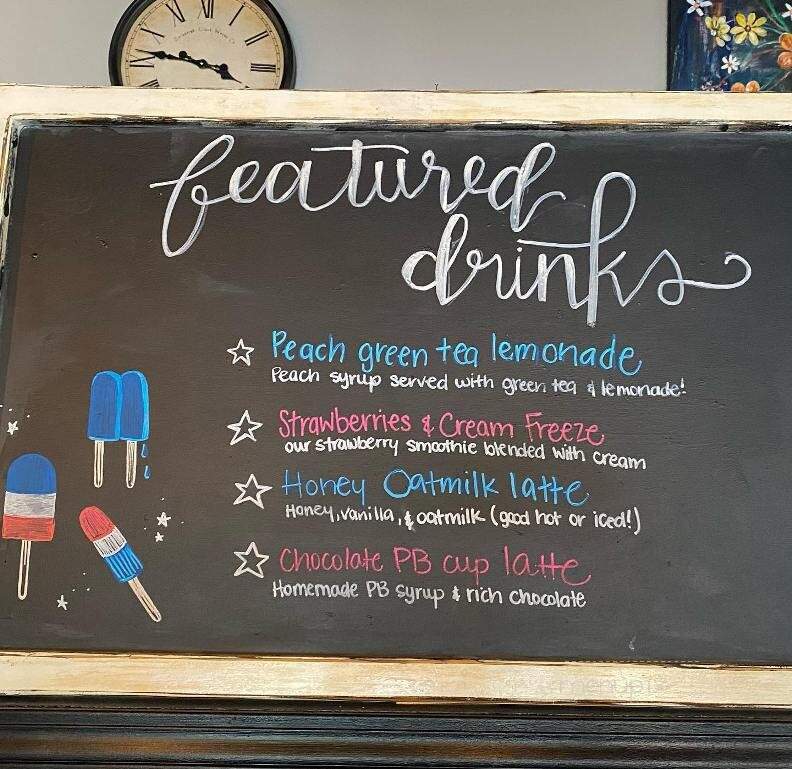 featured
drinks
Peach green tea lemonade
Peach syrup served with green tea & lemonade!
Strawberries & Cream Freeze
our strawberry smoothie blended with cream
Honey Oatmilk latte
Honey, vanilla, & oatmilk (good hot or iced!)
Chocolate PB cup latte
Homemade PB syrup & rich chocolate